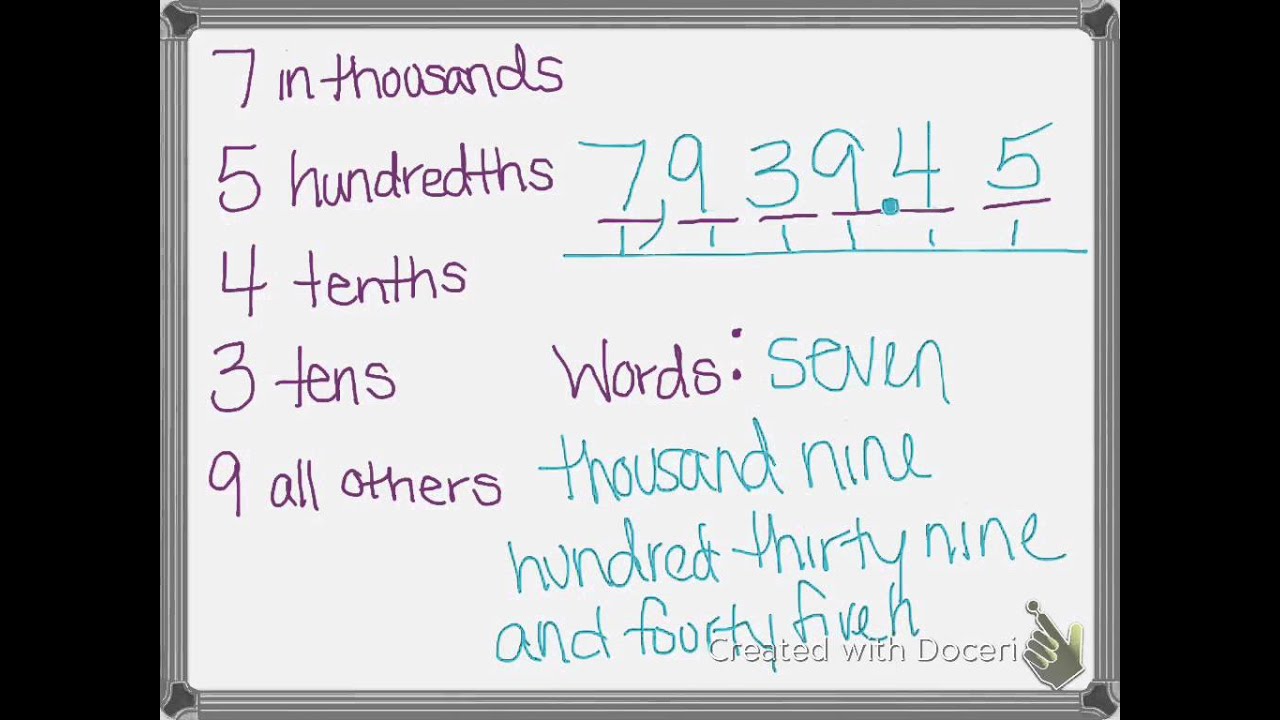 7 in thousands
5 hundredths
4 tenths
3 tens
9 all others
7,939.45
Words: seven
thousand nine
hundred thirty nine
and fourty five h
Created with Doceri